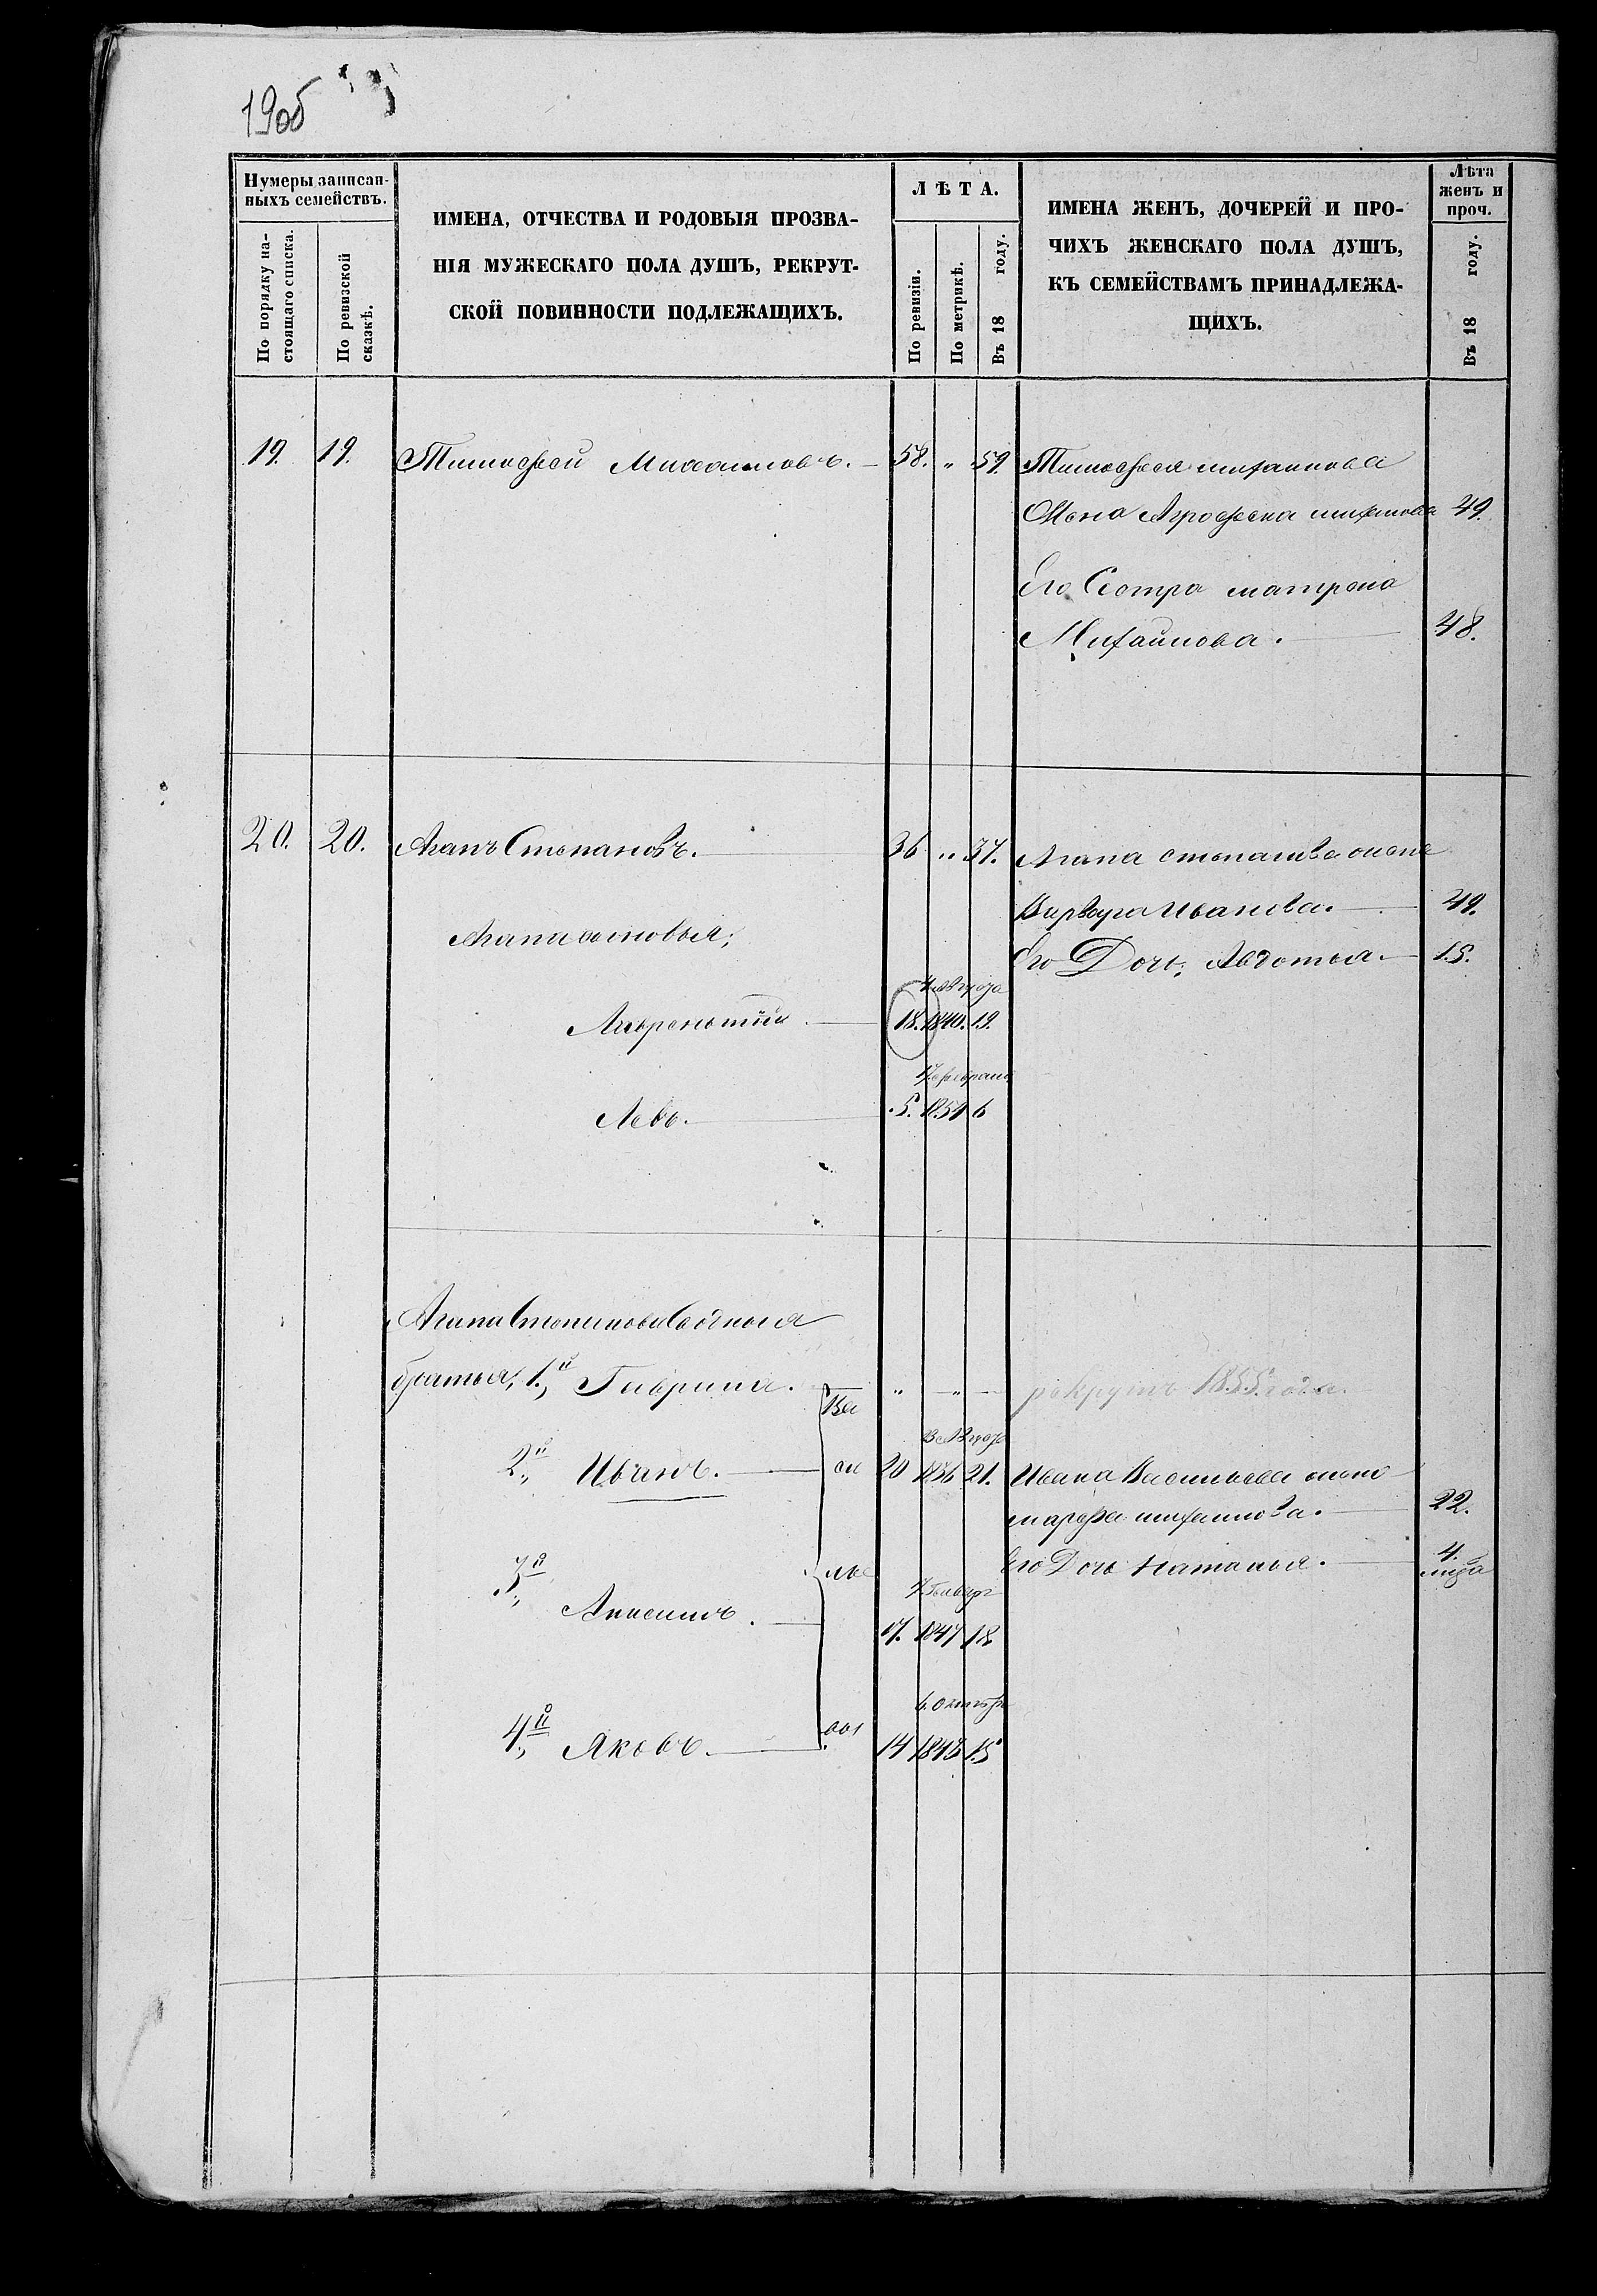 190б
Нумеры записан-
ныхъ семействъ.
По порядку на-
стоящаго списка.
По ревизской
сказкѣ.
ИМЕНА, ОТЧЕСТВА И РОДОВЫЯ ПРОЗВА-
НІЯ МУЖЕСКАГО ПОЛА ДУШЪ, РЕКРУТ-
СКОЙ ПОВИННОСТИ ПОДЛЕЖАЩИХЪ.
ЛѢТА.
По ревизіи.
По метрикѣ.
Въ 18 году.
ИМЕНА ЖЕНЪ, ДОЧЕРЕЙ И ПРО-
ЧИХЪ ЖЕНСКАГО ПОЛА ДУШЪ,
КЪ СЕМЕЙСТВАМЪ ПРИНАДЛЕЖА-
ЩИХЪ.
Лѣта
женъ и
проч.
Въ 18 году.
19. 19. Тимофей Михаиловъ. 58. " 59. Тимофея михаилова
Жена Агрофена михаилова 49.
Его Сестра матрена
Михаилова. 48.
20. 20. Агапъ Степановъ. 36 " 37. Агапа степанова жена
Варвара Иванова. 49.
Агапа сыновья;
Его Дочь; Авдотья. 15.
Августа
Лаврентий. 18. 1840. 19.
февраля
Левъ. 5. 1851 6
Агапа Степанова Сводныя
братья, 1й Гаврила. " " рекрутъ 1855 года.
Ва
Августа
2й Иванъ. си 20 1836 21. Ивана Васильева жена
марфа михаилова. 22.
3й лье Его Дочь Наталья. 4.
Января
Анисимъ. 17. 1841 18
Октября
4й Яковъ. 14 1843 15